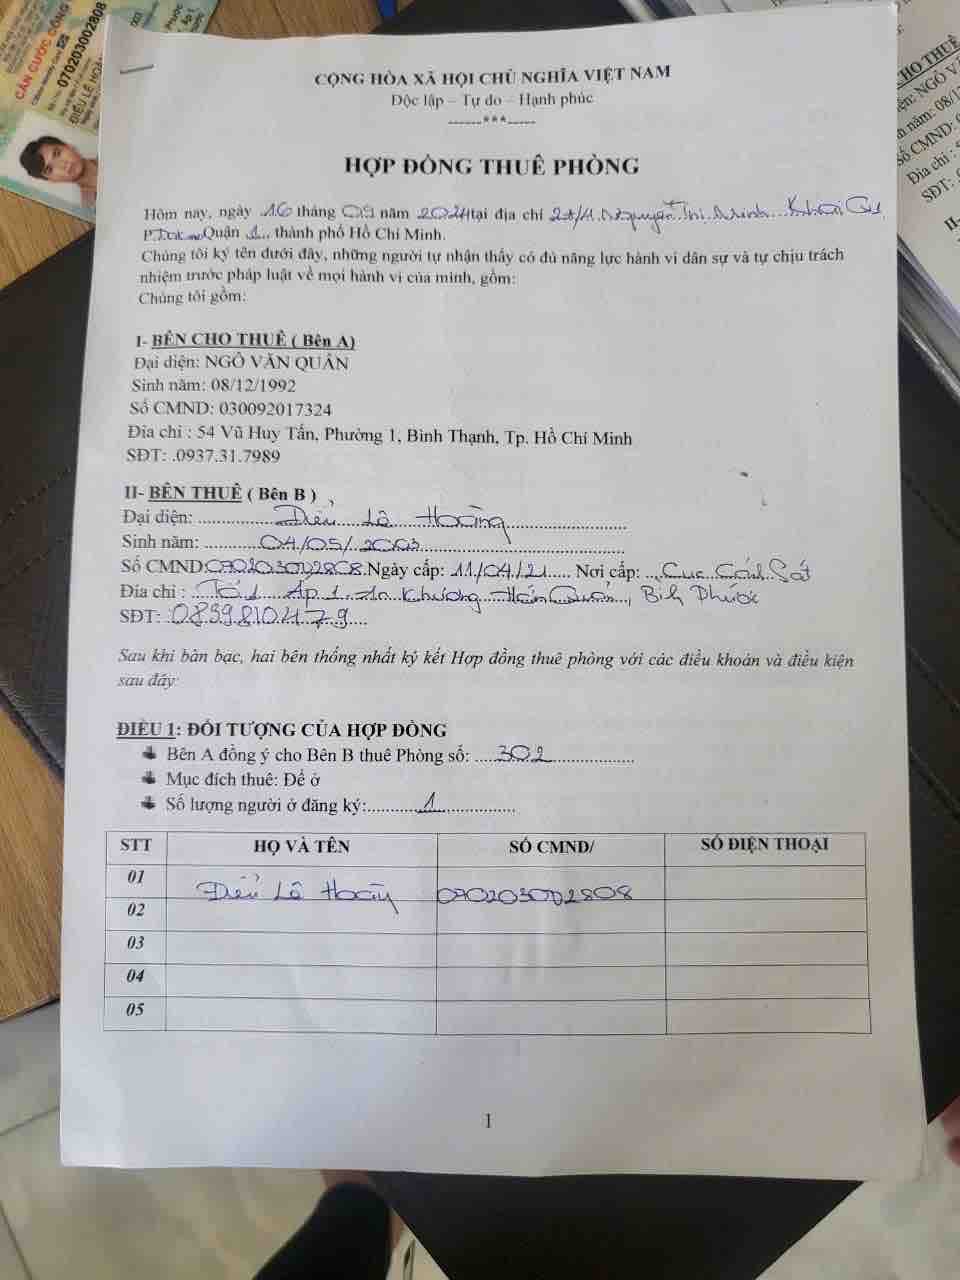 CĂN CƯỚC CÔNG
Citizen Identity Card
070203002808
ĐIỂU LÊ HOÀ
CỘNG HÒA XÃ HỘI CHỦ NGHĨA VIỆT NAM
Độc lập – Tự do – Hạnh phúc
------***------
HỢP ĐỒNG THUÊ PHÒNG
Hôm nay, ngày 16 tháng 09 năm 2024 tại địa chỉ Nguyễn Thị Minh Khai Q1
Quận 1, thành phố Hồ Chí Minh.
Chúng tôi ký tên dưới đây, những người tự nhận thấy có đủ năng lực hành vi dân sự và tự chịu trách
nhiệm trước pháp luật về mọi hành vi của mình, gồm:
Chúng tôi gồm:
I- BÊN CHO THUÊ ( Bên A)
Đại diện: NGÔ VĂN QUÂN
Sinh năm: 08/12/1992
Số CMND: 030092017324
Địa chỉ : 54 Vũ Huy Tấn, Phường 1, Bình Thạnh, Tp. Hồ Chí Minh
SĐT: .0937.31.7989
II- BÊN THUÊ ( Bên B )
Đại diện: Điểu Lê Hoàng
Sinh năm: 04/05/2003
Số CMND: 070203002808 Ngày cấp: 11/04/21 Nơi cấp: Cục Cảnh Sát
Địa chỉ : Tổ 1 Ấp 1 An Khương Hớn Quản, Bình Phước
SĐT: 0859810479
Sau khi bàn bạc, hai bên thống nhất ký kết Hợp đồng thuê phòng với các điều khoản và điều kiện
sau đây:
ĐIỀU 1: ĐỐI TƯỢNG CỦA HỢP ĐỒNG
Bên A đồng ý cho Bên B thuê Phòng số: 302
Mục đích thuê: Để ở
Số lượng người ở đăng ký: 1
STT HỌ VÀ TÊN SỐ CMND/ SỐ ĐIỆN THOẠI
01
Điểu Lê Hoàng 070203002808
02
03
04
05
1
HO THUÊ
SỐ CMND:
Địa chỉ :
SĐT: